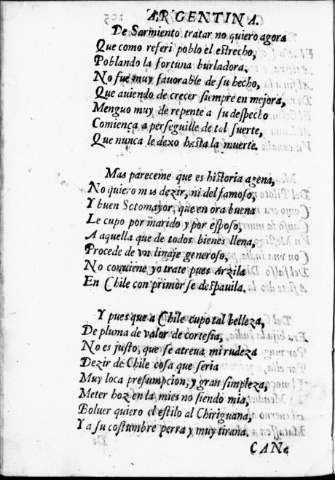 ARGENTINA.
De Sarmiento tratar no quiero agora
Que como referi poblo el estrecho,
Poblando la fortuna burladora,
No fue muy favorable de su hecho,
Que auiendo de crecer siempre en mejora,
Menguo muy de repente a su despecho
Comiença a perseguille de tal suerte,
Que nunca le dexo hasta la muerte.
Mas pareceme que es historia agena,
No quiero mas dezir, ni del famoso,
Y buen Sotomayor, que en ora buena
Le cupo por marido y por esposo,
A aquella que de todos bienes llena,
Procede de vn linaje generoso,
No conuiene yo trate pues Arzila
En Chile con primor se despauila.
Y pues que a Chile cupo tal belleza,
De pluma de valor de cortesia,
No es justo, que se atreua mi rudeza
Dezir de Chile cosa que seria
Muy loca presumpcion, y gran simpleza,
Meter hoz en la mies no siendo mia,
Boluer quiero el estilo al Chiriguana,
Y a su costumbre perra y muy tirana.
CAN-